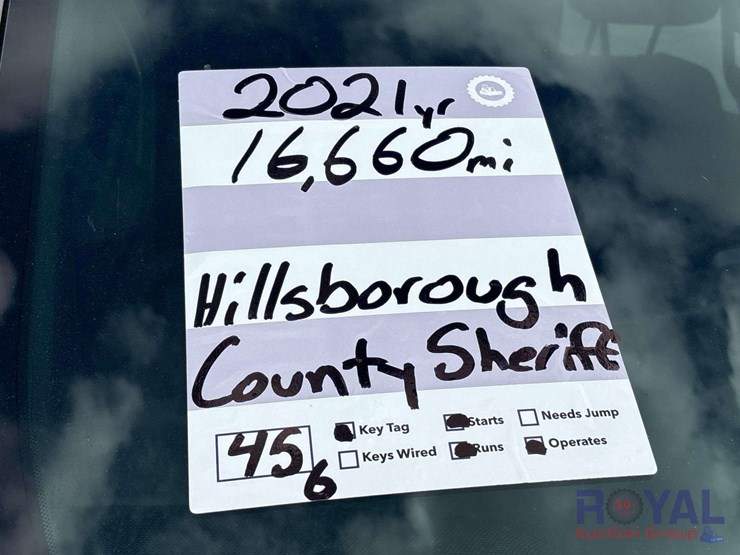 2021yr
16,660mi
Hillsborough
County Sheriff
456
Key Tag
Starts
Needs Jump
Keys Wired
Runs
Operates
ROYAL
Auction Group